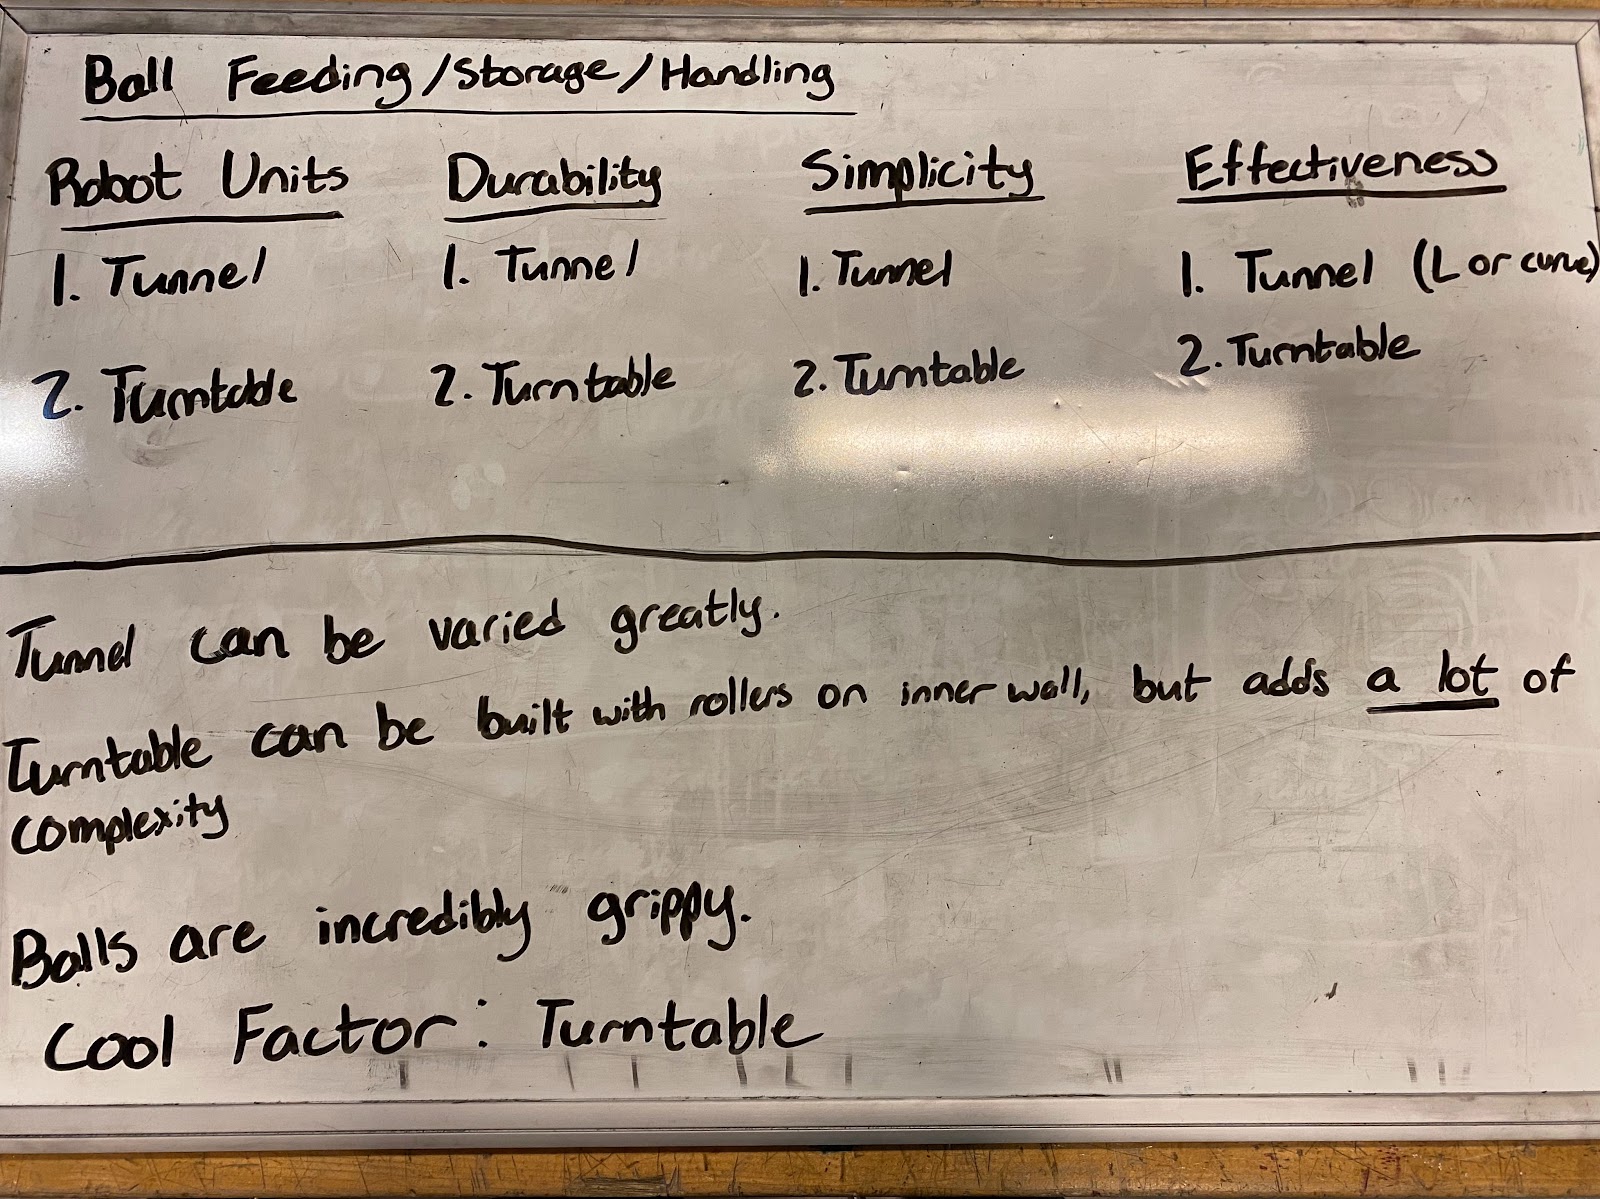 Ball Feeding/Storage/Handling
Robot Units Durability Simplicity Effectiveness
1. Tunnel 1. Tunnel 1. Tunnel 1. Tunnel (L or curve)
2. Turntable 2. Turntable 2. Turntable 2. Turntable
Tunnel can be varied greatly.
Turntable can be built with rollers on inner wall, but adds a lot of
complexity
Balls are incredibly grippy.
Cool Factor: Turntable